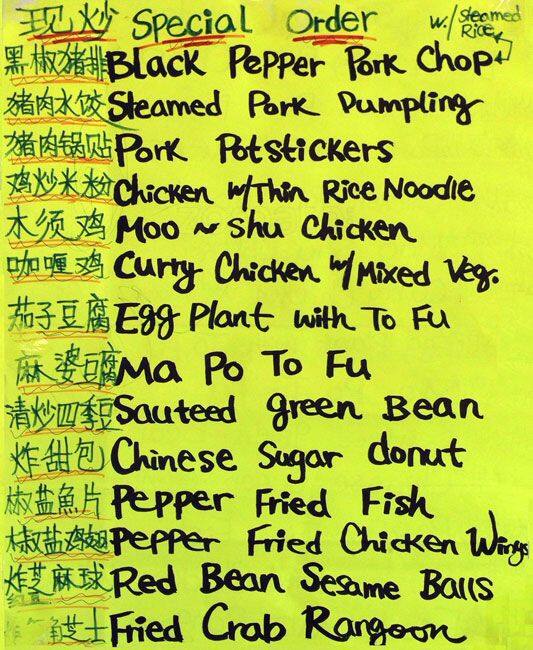 现炒 Special Order w/ Steamed Rice
黑椒猪排 Black Pepper Pork Chop
猪肉水饺 Steamed Pork Dumpling
猪肉锅贴 Pork Potstickers
鸡炒米粉 Chicken w/Thin Rice Noodle
木须鸡 Moo ~ Shu Chicken
咖喱鸡 Curry Chicken w/ Mixed Veg.
茄子豆腐 Egg Plant with To Fu
麻婆豆腐 Ma Po To Fu
清炒四季豆 Sauteed green Bean
炸甜包 Chinese Sugar donut
椒盐魚片 Pepper Fried Fish
椒盐鸡翅 Pepper Fried Chicken Wings
炸芝麻球 Red Bean Sesame Balls
角芝士 Fried Crab Rangoon